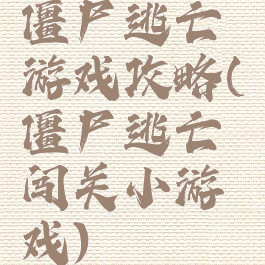 僵尸逃亡
游戏攻略(
僵尸逃亡
闯关小游
戏)